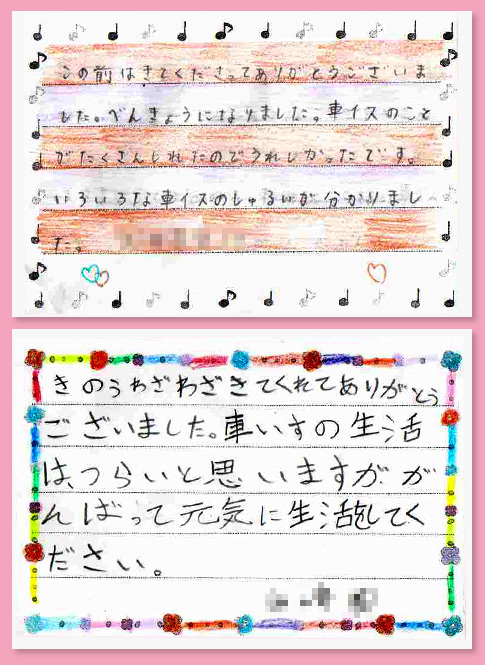 この前はきてくださってありがとうございま
した。べんきょうになりました。車イスのこと
がたくさんしれたのでうれしかったです。
いろいろな車イスのしゅるいが分かりまし
た。
きのうわざわざきてくれてありがとう
ございました。車いすの生活
は、つらいと思いますが、が
んばって元気に生活してく
ださい。